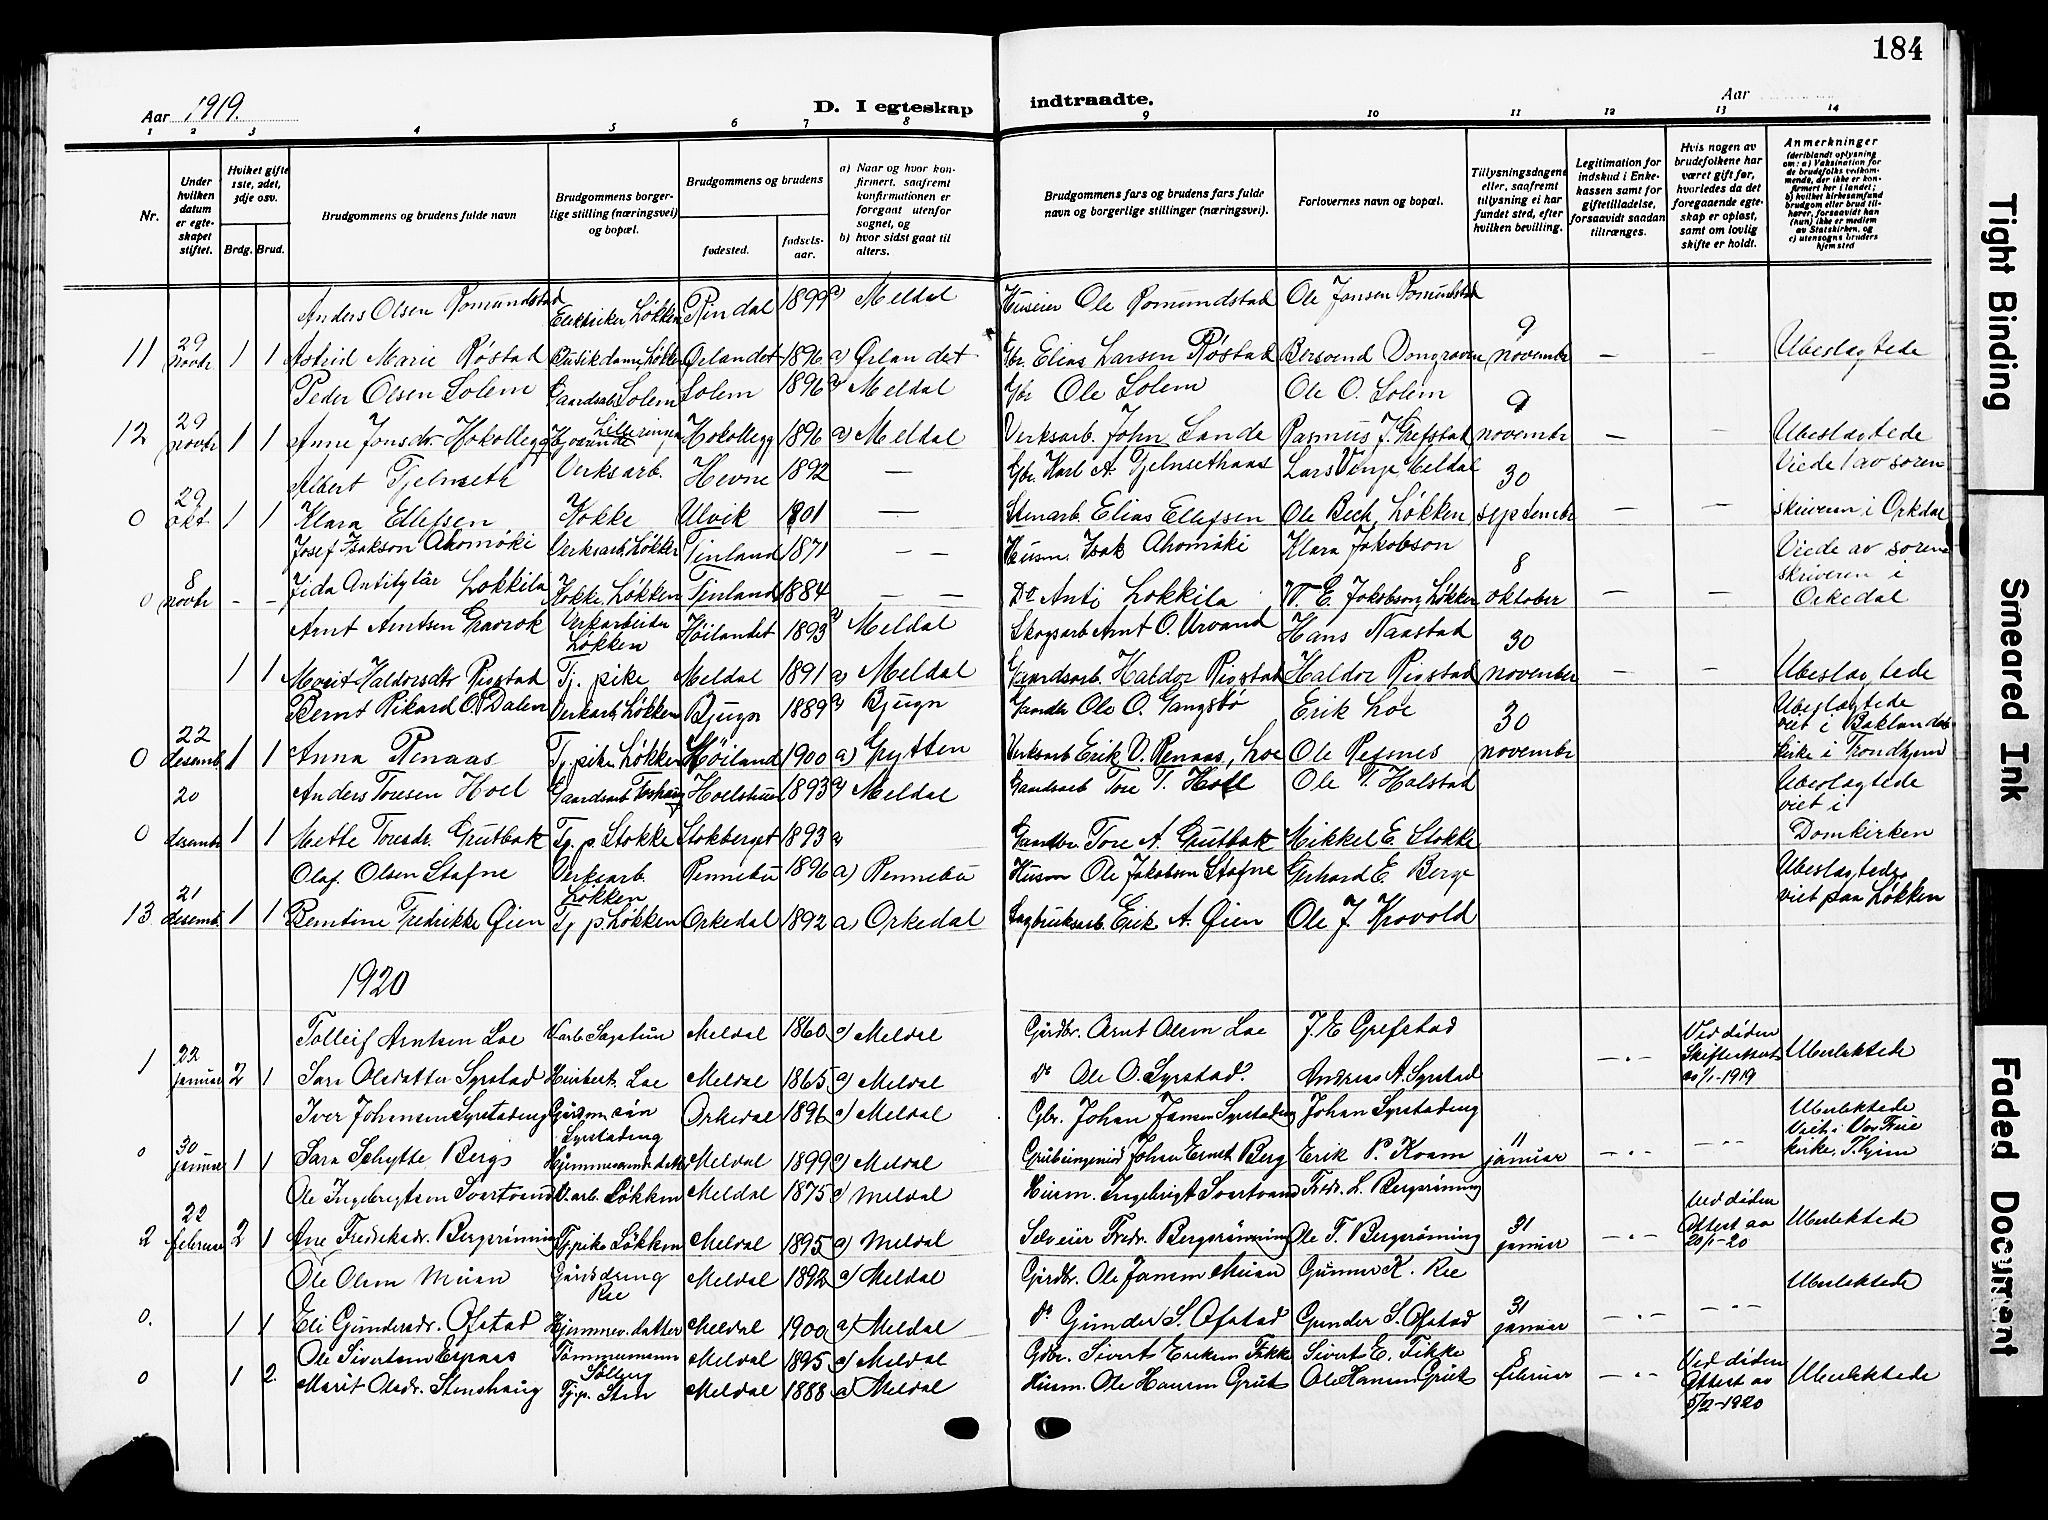 184
Aar 1919.
D. I egteskap indtraadte.
Aar
1 2 3 4 5 6 7 8 9 10 11 12 13 14
Nr.
Under hvilken datum er egteskapet stiftet.
Hviket gifte 1ste, 2det, 3dje osv.
Brdg. Brud.
Brudgommens og brudens fulde navn
Brudgommens borgerlige stilling (næringsvei) og bopæl.
Brudgommens og brudens
fødested.
fødselsaar.
a) Naar og hvor konfirmert, saafremt konfirmationen er foregaat utenfor sognet, og
b) hvor sidst gaat til alters.
Brudgommens fars og brudens fars fulde navn og borgerlige stillinger (næringsvei).
Forlovernes navn og bopæl.
Tillysningsdagene eller, saafremt tillysning ei har fundet sted, efter hvilken bevilling.
Legitimation for indskud i Enkekassen samt for giftetilladelse, forsaavidt saadan tiltrænges.
Hvis nogen av brudefolkene har været gift før, hvorledes da det foregaaende egteskap er opløst, samt om lovlig skifte er holdt.
Anmerkninger
(deriblandt oplysning om: a) Vaksination for de brudefolks vedkommende, der ikke er konfirmert her i landet; b) hvilket kirkesamfund brudgom eller brud tilhører, forsaavidt han (hun) ikke er medlem av Statskirken, og c) utensogns bruders hjemsted
Anders Olsen Romundstad Elektriker Løkken Rindal 1899 a) Meldal Huseier Ole Romundstad Ole Jonsen Romundstad
11 29 novbr 1 1 Astrid Marie Røstad Butikdame, Løkken Ørlandet 1896 a) Ørlandet Gbr. Elias Larsen Røstad Bersvend Dongraven 9 novembr — — Ubeslægtede
Peder Olsen Solem Gaardsarb. Solem Solem 1896 a) Meldal Gbr Ole Solem Ole O. Solem
12 29 novbr 1 1 Anne Jonsdtr. Hokollegg Hokollegg 1896 a) Meldal Verksarb. John Lande Rasmus J. Grefstad 9 novembr — — Ubeslægtede
Albert Fjelnseth Verksarb. Hevne 1892 — Gbr. Karl A. Fjelnsethaas Lars Vinje Meldal
0 29 okt. 1 1 Klara Ellefsen Kokke Ulvik 1801 — Stenarb. Elias Ellefsen Ole Bech, Løkken 30 septembr — — Viede av sorenskriveren i Orkdal
Josef Isakson Ahomäki Verksarb. Løkken Finland 1871 — — Husm. Isak Ahomäki Klara Jakobson
0 8 novbr - - Fida Antintytär Lokkila Kokke, Løkken Finland 1884 — — Do Anti Lokkila W. E. Jakobson, Løkken 8 oktober — — Viede av sorenskriveren i Orkedal
Arnt Arntsen Gravrok Verkarbeider Løkken Høilandet 1893 a) Meldal Skogsarb Arnt O. Urvand Hans Naastad
1 1 Marit Haldorsdtr Rigstad Tj. pike Meldal 1891 a) Meldal Gaardsarb. Haldor Rigstad Haldor Rigstad 30 november — — Ubeslægtede
Bernt Rikard O. Dalen Verkarb, Løkken Bjugn 1889 a) Bjugn Gaardbr Ole O. Gangstø Erik Loe
0 22 desemb. 1 1 Anna Renaas Tj. pike Løkken Høiland 1900 a) Grytten Verksarb Erik O. Renaas, Loe Ole Refsnes 30 novembr Ubeslægtede viet i Baklandets kirke i Trondhjem
Anders Toresen Hoel Gaardsarb Hoelshus 1893 a) Meldal Gaardsarb Tore T. Hoel Ole T. Halstad
0 20 desembr 1 1 Mette Toresdr. Grutbak Tj. p. Stokke Stokberget 1893 a) Gaardbr. Tore A. Grutbak Mikkel E. Stokke Ubeslægtede viet i Domkirken
Olaf Olsen Stafne Verksarb. Løkken Rennebu 1896 a) Rennebu Husm Ole Jakobsen Stafne Gerhard E. Berge
13 21 desemb. 1 1 Berntine Fredrikke Øien Tj p. Løkken Orkedal 1892 a) Orkedal Sagbruksarb. Erik A. Øien Ole J. Krovold Ubeslægtede viet paa Løkken
1920
Tolleif Arntsen Loe Varb. Sagatun Meldal 1860 a) Meldal Gårdbr. Arnt Olsen Loe J. E Grefstad
1 22 januar 2 1 Sara Olsdatter Syrstad Husbest. Loe Meldal 1865 a) Meldal do Ole O. Syrstad. Andreas A. Syrstad — " — Ved døden Skifteattest av 1/1-1919 Ubeslektede
Iver Johnsen Syrstadeng Gårdmsøn Syrstadeng Orkedal 1896 a) Meldal Gbr. Johan Jansen Syrstadeng Johan Syrstadeng
0 30 januar 1 1 Sara Schytte Berg Hjemmeværende datter Meldal 1899 a) Meldal Grubeingeniør Johan Ernst Berg Erik P. Kvam 11 januar — " — — " — Ubeslektede Viet i Vor Frue kirke, T.hjem
Ole Ingebrigtsen Svartvand V. arb. Løkken Meldal 1875 a) Meldal Husm. Ingebrigt Svartvand Fredr. L. Bergsrønning
2 22 februar 2 1 Ane Fredriksdr. Bergsrønning Tj. pike Løkken Meldal 1895 a) Meldal Selveier Fredr. Bergsrønning Ole F. Bergsrønning 31 januar — " — Ved døden Attest av 20/1-20 Ubeslektede
Ole Olsen Muan Gårdsdreng Ree Meldal 1892 a) Meldal Gårdbr. Ole Jansen Muan Gunnar K. Ree
0. 1 1 Eli Gundersdr. Øfstad Hjemmev. datter Meldal 1900 a) Meldal do Gunder S. Øfstad Gunder S. Øfstad 31 januar — " — — " — Ubeslektede
Ole Sivertsen Espaas Tømmermann Solberg Meldal 1895 a) Meldal Gdbr. Sivert Eriksen Fikke Sivert E. Fikke
0 1 2 Marit Olsdr. Stenshaug Tj.p. Sten Meldal 1888 a) Meldal Husm. Ole Hansen Grut Ole Hansen Grut 8 februar — " — Ved døden Attest av 5/2-1920 Ubeslektede
Tight Binding
Smeared Ink
Faded Document